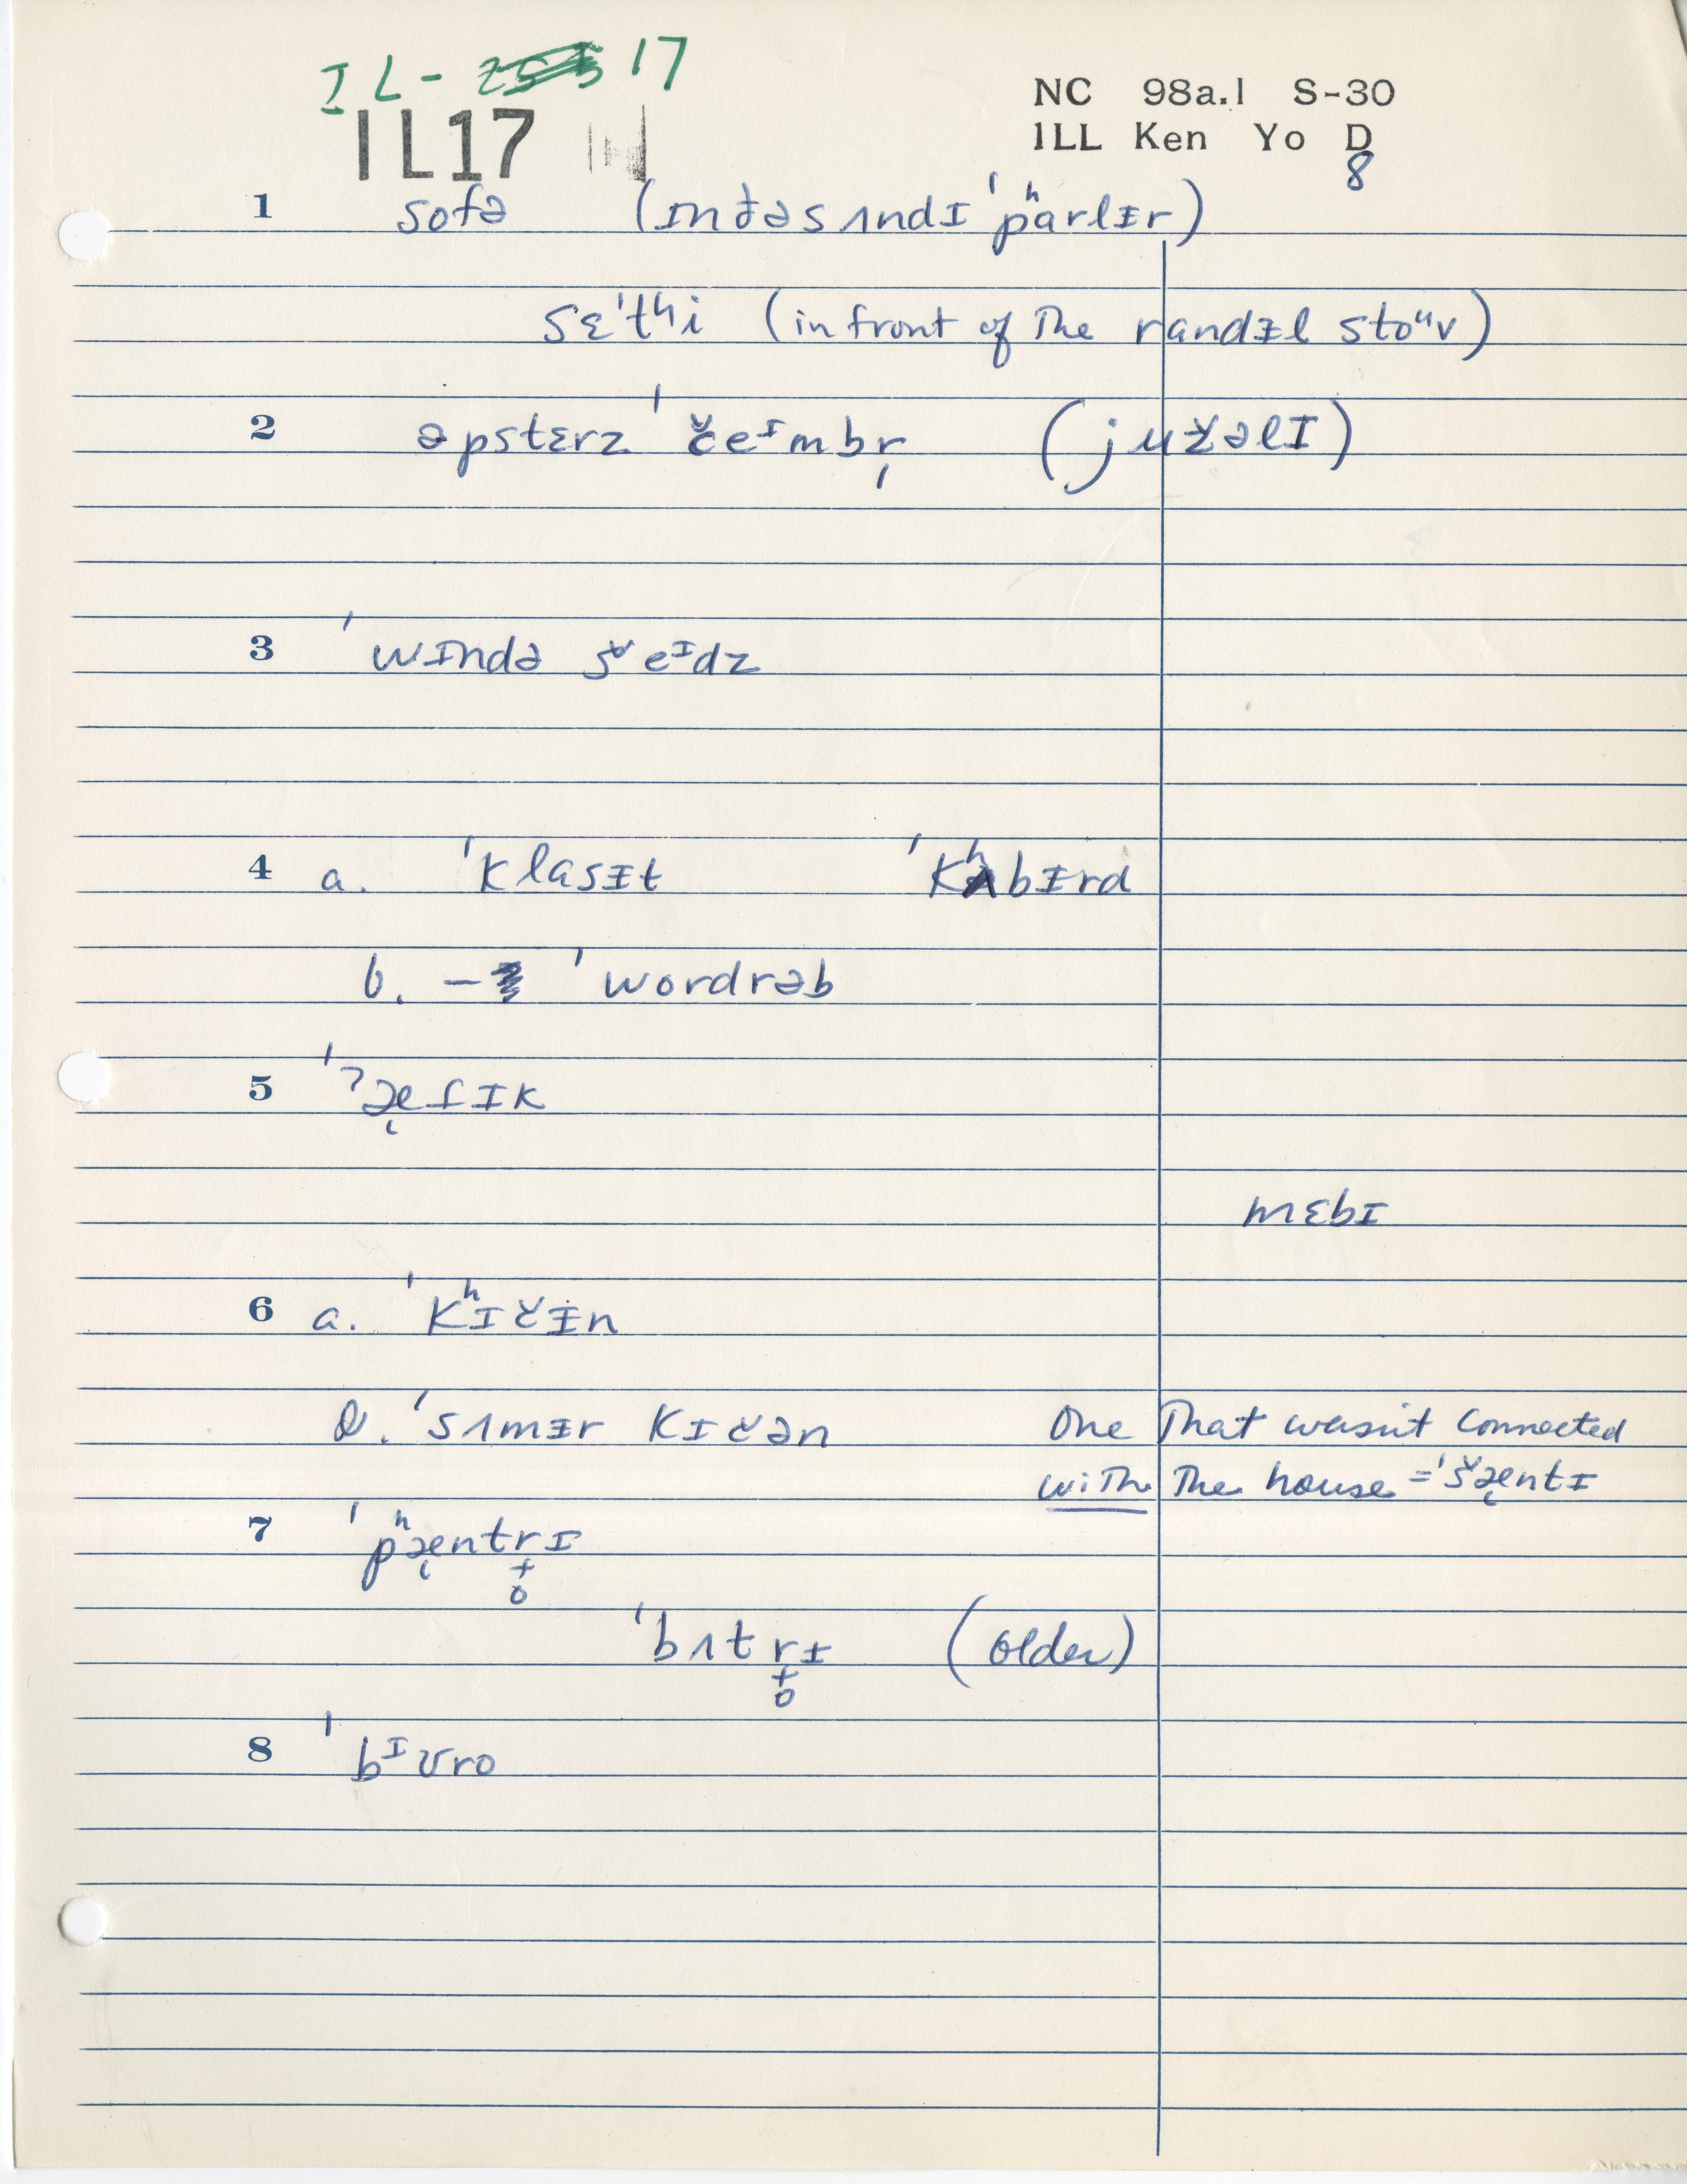 IL- 17
IL17
NC 98a.1 S-30
ILL Ken Yo D
8
1 sofə (ɪnðəsʌndɪ ˈpʰarlɨr)
sɛˈtʰi (in front of the randɨl stoᵘv)
2 əpstɛrz ˈčeᴵmbr̩ (južəlɪ)
3 ˈwɪndə šeᴵdz
4 a. ˈklasɨt ˈkʰʌbɨrd
b. – ˈwordrəb
5 ˈʔæ̨tɪk
mɛbɪ
6 a. ˈkʰɪčɨn
b. ˈsʌmɨr kɪčən One that wasn't connected
with the house = ˈšæ̨ntɪ
7 ˈpʰæ̨ntr̟̊ɪ
ˈbʌtr̟̊ɪ (older)
8 ˈbᴵʊro